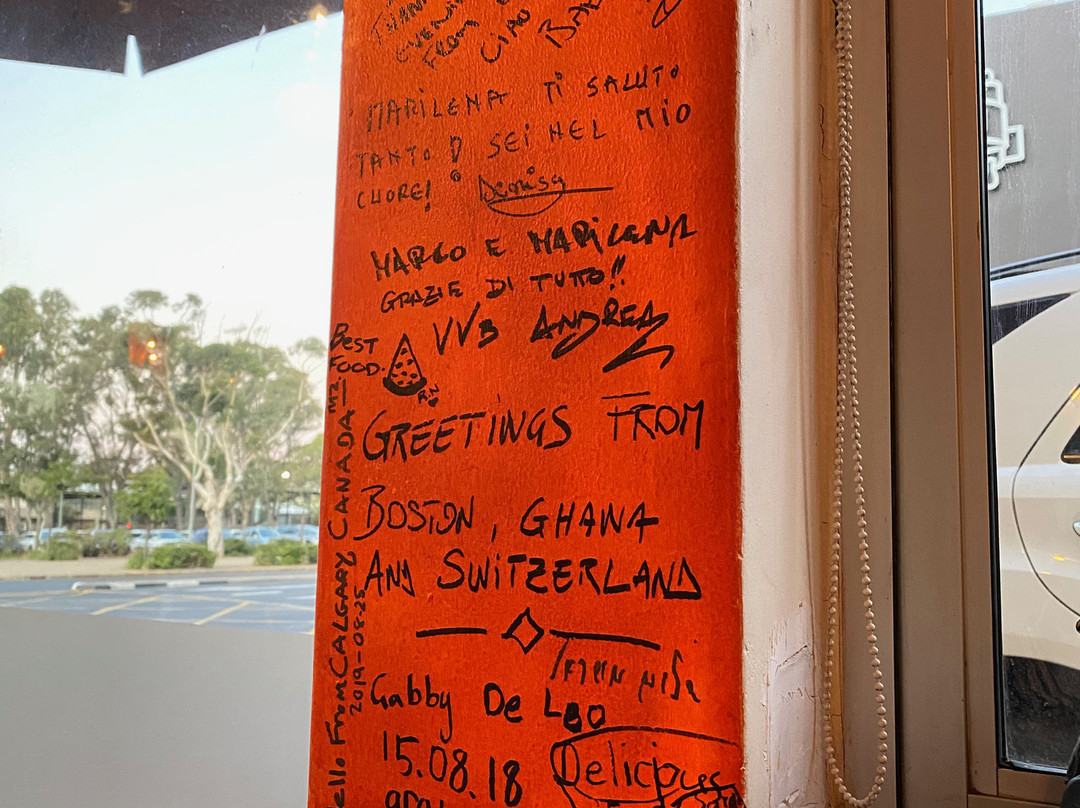 FROM
CIAO
MARILENA Ti SALUTO
TANTO SEi NEL MiO
CUORE! Denisa
MARCO E MARiLENA
GRAZIE DI TUTTO!!
VVB ANDREA
BEST
FOOD.
R.N
GREETiNGS FROM
BOSTON, GHANA
ANy SWiTZERLAND
Gabby De Leo
15.08.18
Delicious
Hello FROM CALGARY CANADA
2019-08-25